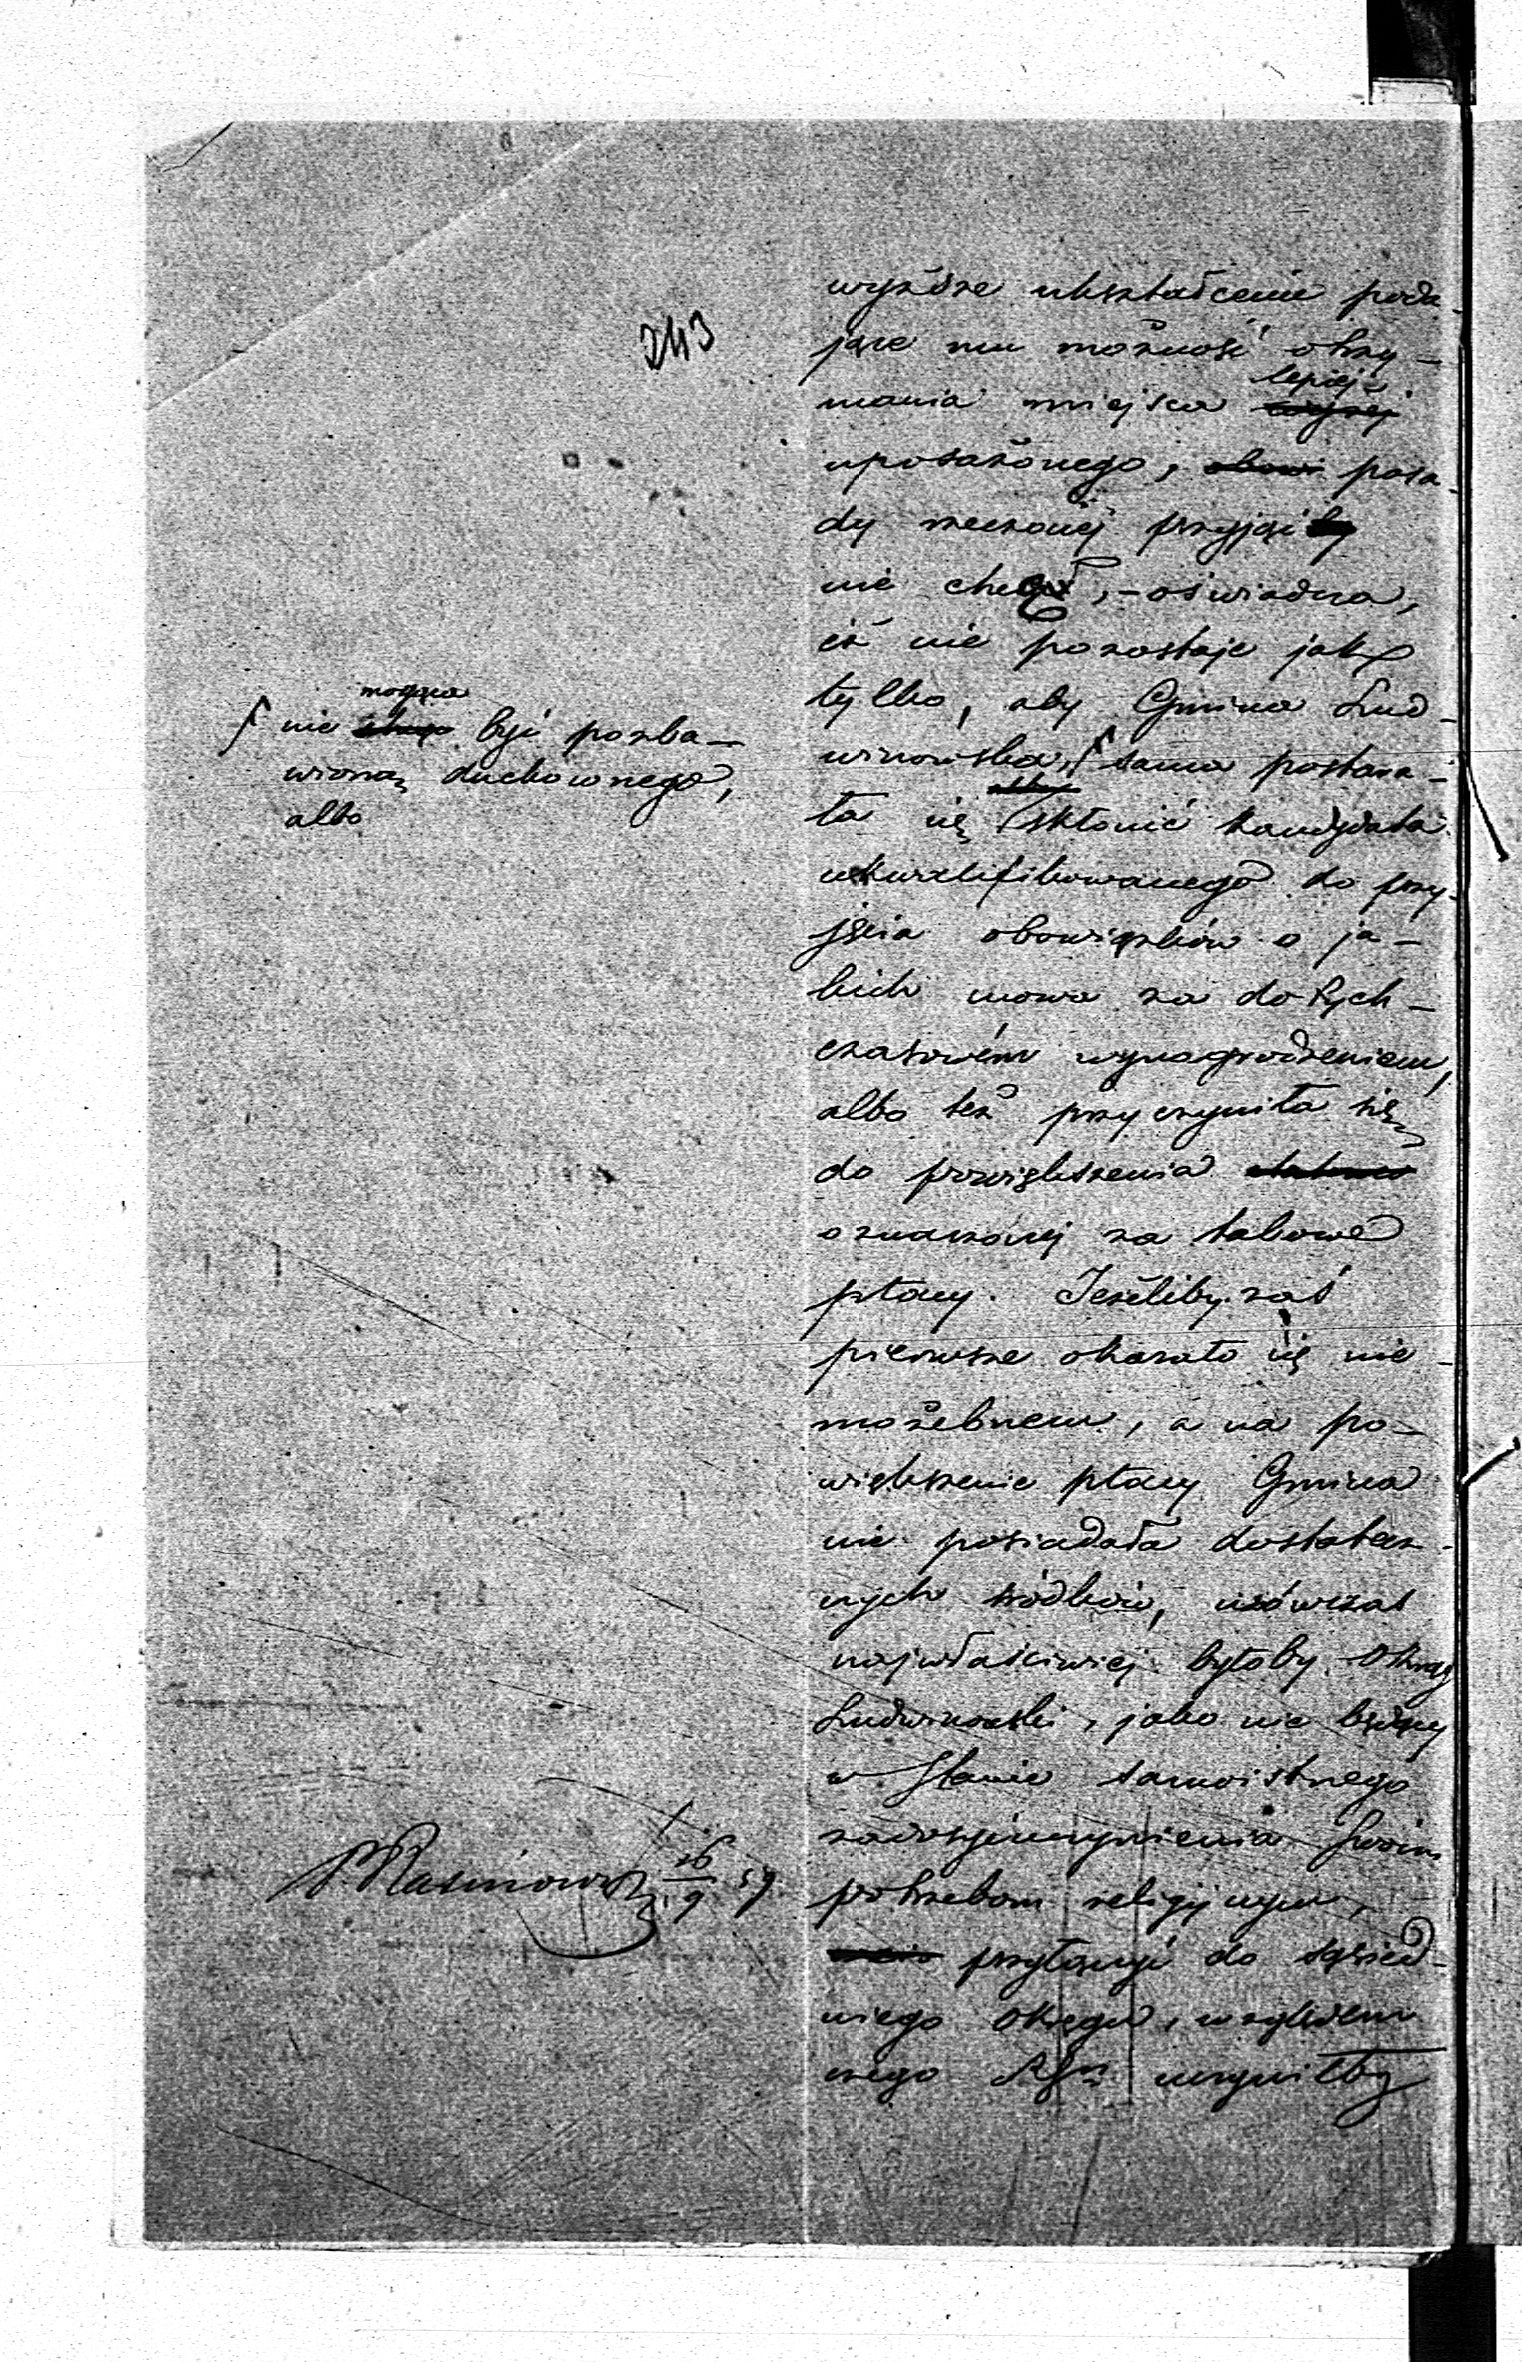 243
wyższe ukształcenie poda-
jące mu możność otrzy-
mania miejsca lepiej
uposażonego, posa-
dy rzeczonéj przyjąć
nie chciał, - oświadcza,
iż nie pozostaje jak
tylko, aby Gmina Lud-
winowska, sama postara-
ła się skłonić kandydata
ukwalifikowanego do przy-
jęcia obowiązków o ja-
kich mowa za dotych-
czasowém wynagrodzeniem,
albo też przyczyniła się
do powiększenia
oznaczonéj za takowe
płacy. Jeżeliby zaś
pierwsze okazało się nie-
możebnem, a na po-
większenie płacy Gmina
nie posiadała dostatecz-
nych środków, wówczas
najwłaściwiej byłoby Okrąg
Ludwinowski, jako nie będący
w stanie samoistnego
zadosyćuczynienia swoim
potrzebom religijnym,
przyłączyć do sąsied-
niego Okręgu, względem
czego uczyniłby
nie mogąca być pozba-
wioną duchownego,
albo
16/9 59